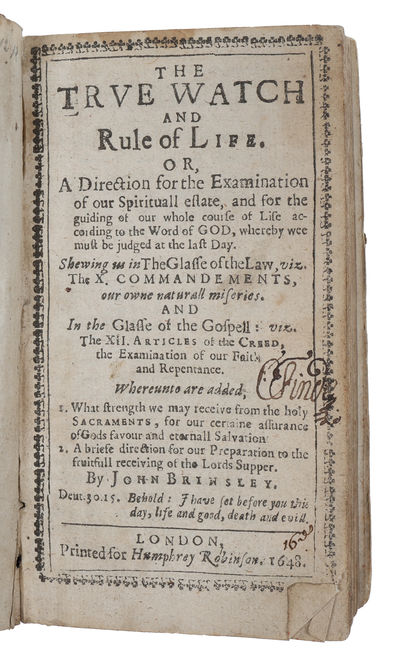 THE
TRVE WATCH
AND
Rule of LIFE.
OR,
A Direction for the Examination
of our Spirituall estate, and for the
guiding of our whole course of Life ac-
cording to the Word of GOD, whereby wee
must be judged at the last Day.
Shewing us in The Glasse of the Law, viz.
The X. COMMANDEMENTS,
our owne naturall miseries.
AND
In the Glasse of the Gospell: viz.
The XII. ARTICLES of the CREED,
the Examination of our Faith
and Repentance.
Whereunto are added,
1. What strength we may receive from the holy
SACRAMENTS, for our certaine assurance
of Gods favour and eternall Salvation
2. A briefe direction for our Preparation to the
fruitfull receiving of the Lords Supper.
By JOHN BRINSLEY.
Deut. 30. 15. Behold: I have set before you this
day, life and good, death and evill.
LONDON,
Printed for Humphrey Robinson. 1648.